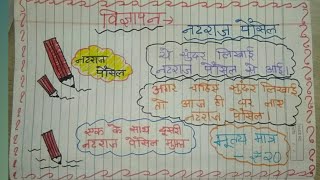 विज्ञापन →
नटराज पेंसिल
ये सुंदर लिखाई
नटराज पेंसिल से आई।
नटराज
पेंसिल
अगर चाहिए सुंदर लिखाई
तो आज ही घर लाए
नटराज पेंसिल
एक के साथ दूसरी
नटराज पेंसिल मुफ्त
मूल्य मात्र
₹20